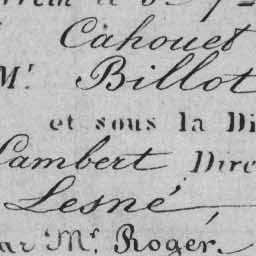 Cahouet
Mr. Billot
et sous la Di
Lambert, Dire
Lesné,
ar Mr. Roger.